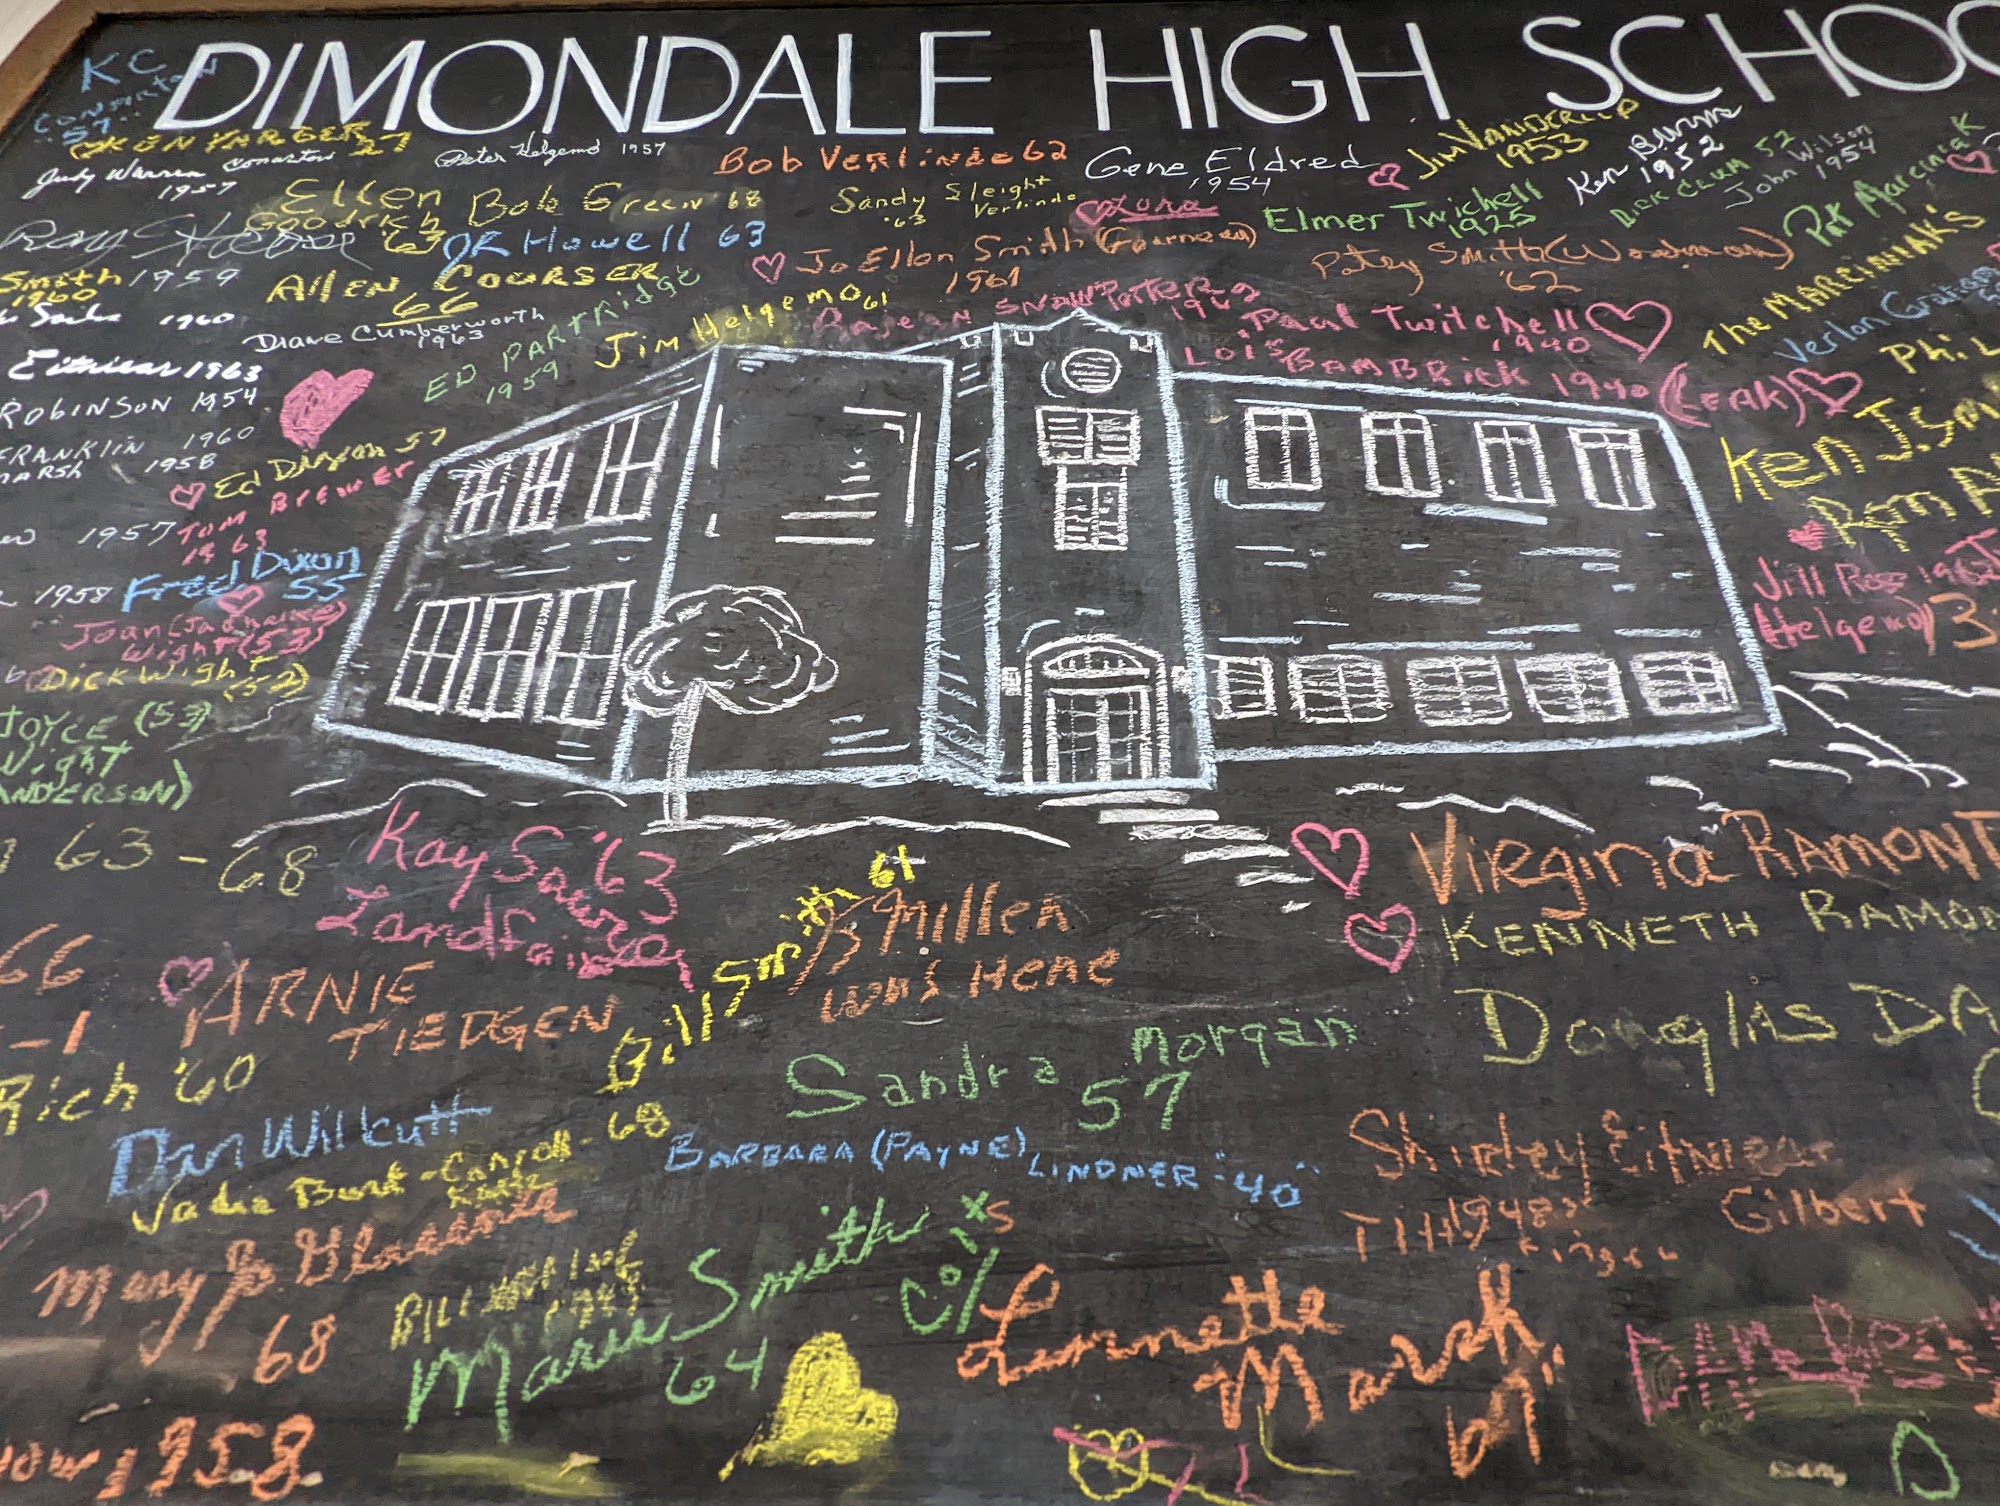 DIMONDALE HIGH SCHOO
KC
CONARTON
57
KEN YARGER 57
Judy Warren Conarton
1957
Peter Helgemo 1957
Bob Verlinde 62
Gene Eldred
1954
Jim Vanderlip
1953
Ken Bunn
1952
Dick Clum 52
John Wilson
1954
Pat Marciniak
Ellen
Goodrich
63
Bob Green 68
Sandy Sleight
'63 Verlinde
Lona
Elmer Twichell
1925
JR Howell 63
Smith 1959
1960
Allen Courser
66
Jo Ellen Smith
1961
Patsy Smith (Woodman)
'62
The Marciniak's
1960
Diane Cumberworth
1963
ED PARTRidge
1959
Jim Helgemo 61
Paul Twitchell
1940
Verlon
Phil
Eitniear 1963
Lois BAMBRick 1940 (LEAK)
ROBINSON 1954
Ken J. Sm
FRANKLIN 1960
MARSH 1958
Ed Dixon 57
Tom BREWER
1963
1957
1958
Fred Dixon
55
Jill Ross
(Helgemo)
Joan
Wight (53)
Dick Wight
(52)
JOYCE (53)
Wight
ANDERSON)
63-68
Kay Sauer '63
Landfair
Bill Smith 61
B Millen
was Here
Virgina RAMONT
KENNETH RAMON
66
ARNIE
TIEDGEN
-1
Douglas DA
Rich '60
Sandra Morgan
57
Dan Wilkutt
68
BARBARA (PAYNE) LINDNER "40"
Shirley Eitniear
1948
Gilbert
Mary Jo
68
BILL
Marie Smith
64
Lynnette
Marsh
67
1958